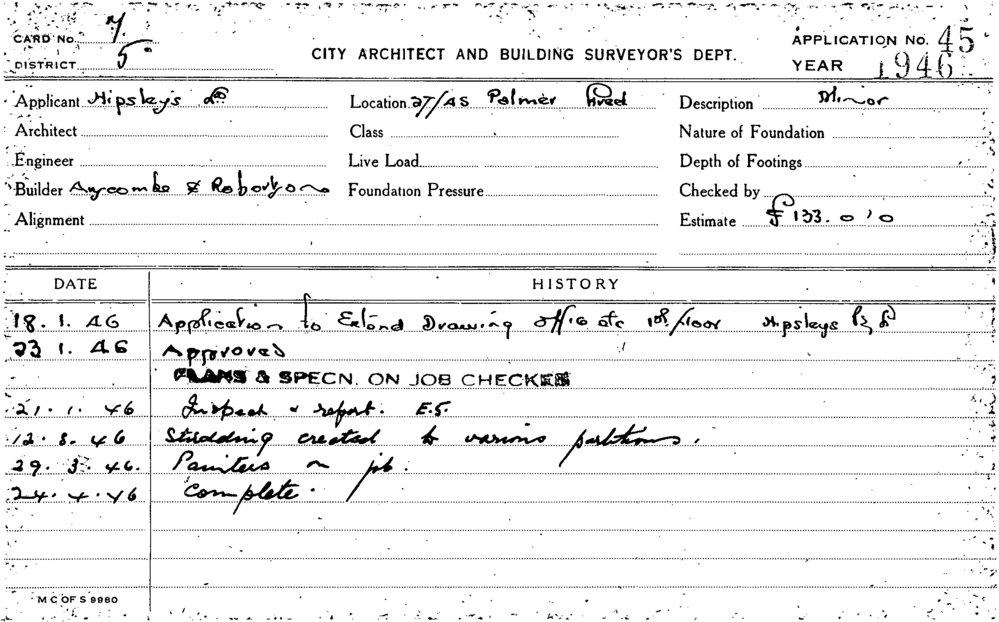 CARD No. 7.
DISTRICT 5
CITY ARCHITECT AND BUILDING SURVEYOR'S DEPT.
APPLICATION No. 45
YEAR 1946
Applicant Hipsleys Ld
Location 27/45 Palmer
Description Minor
Architect
Class
Nature of Foundation
Engineer
Live Load
Depth of Footings
Builder & Robertson
Foundation Pressure
Checked by
Alignment
Estimate £133. 0 '0
DATE
HISTORY
18. 1. 46 Application to Extend Drawing office etc 1st floor Hipsleys
23 1. 46 Approved
PLANS & SPECN. ON JOB CHECKED
21. 1. 46 Inspect & report. E.S.
12. 3. 46 Studding erected to various partitions.
29. 3. 46. Painters on job.
24. 4. 46 Complete.
M C OF S 9980